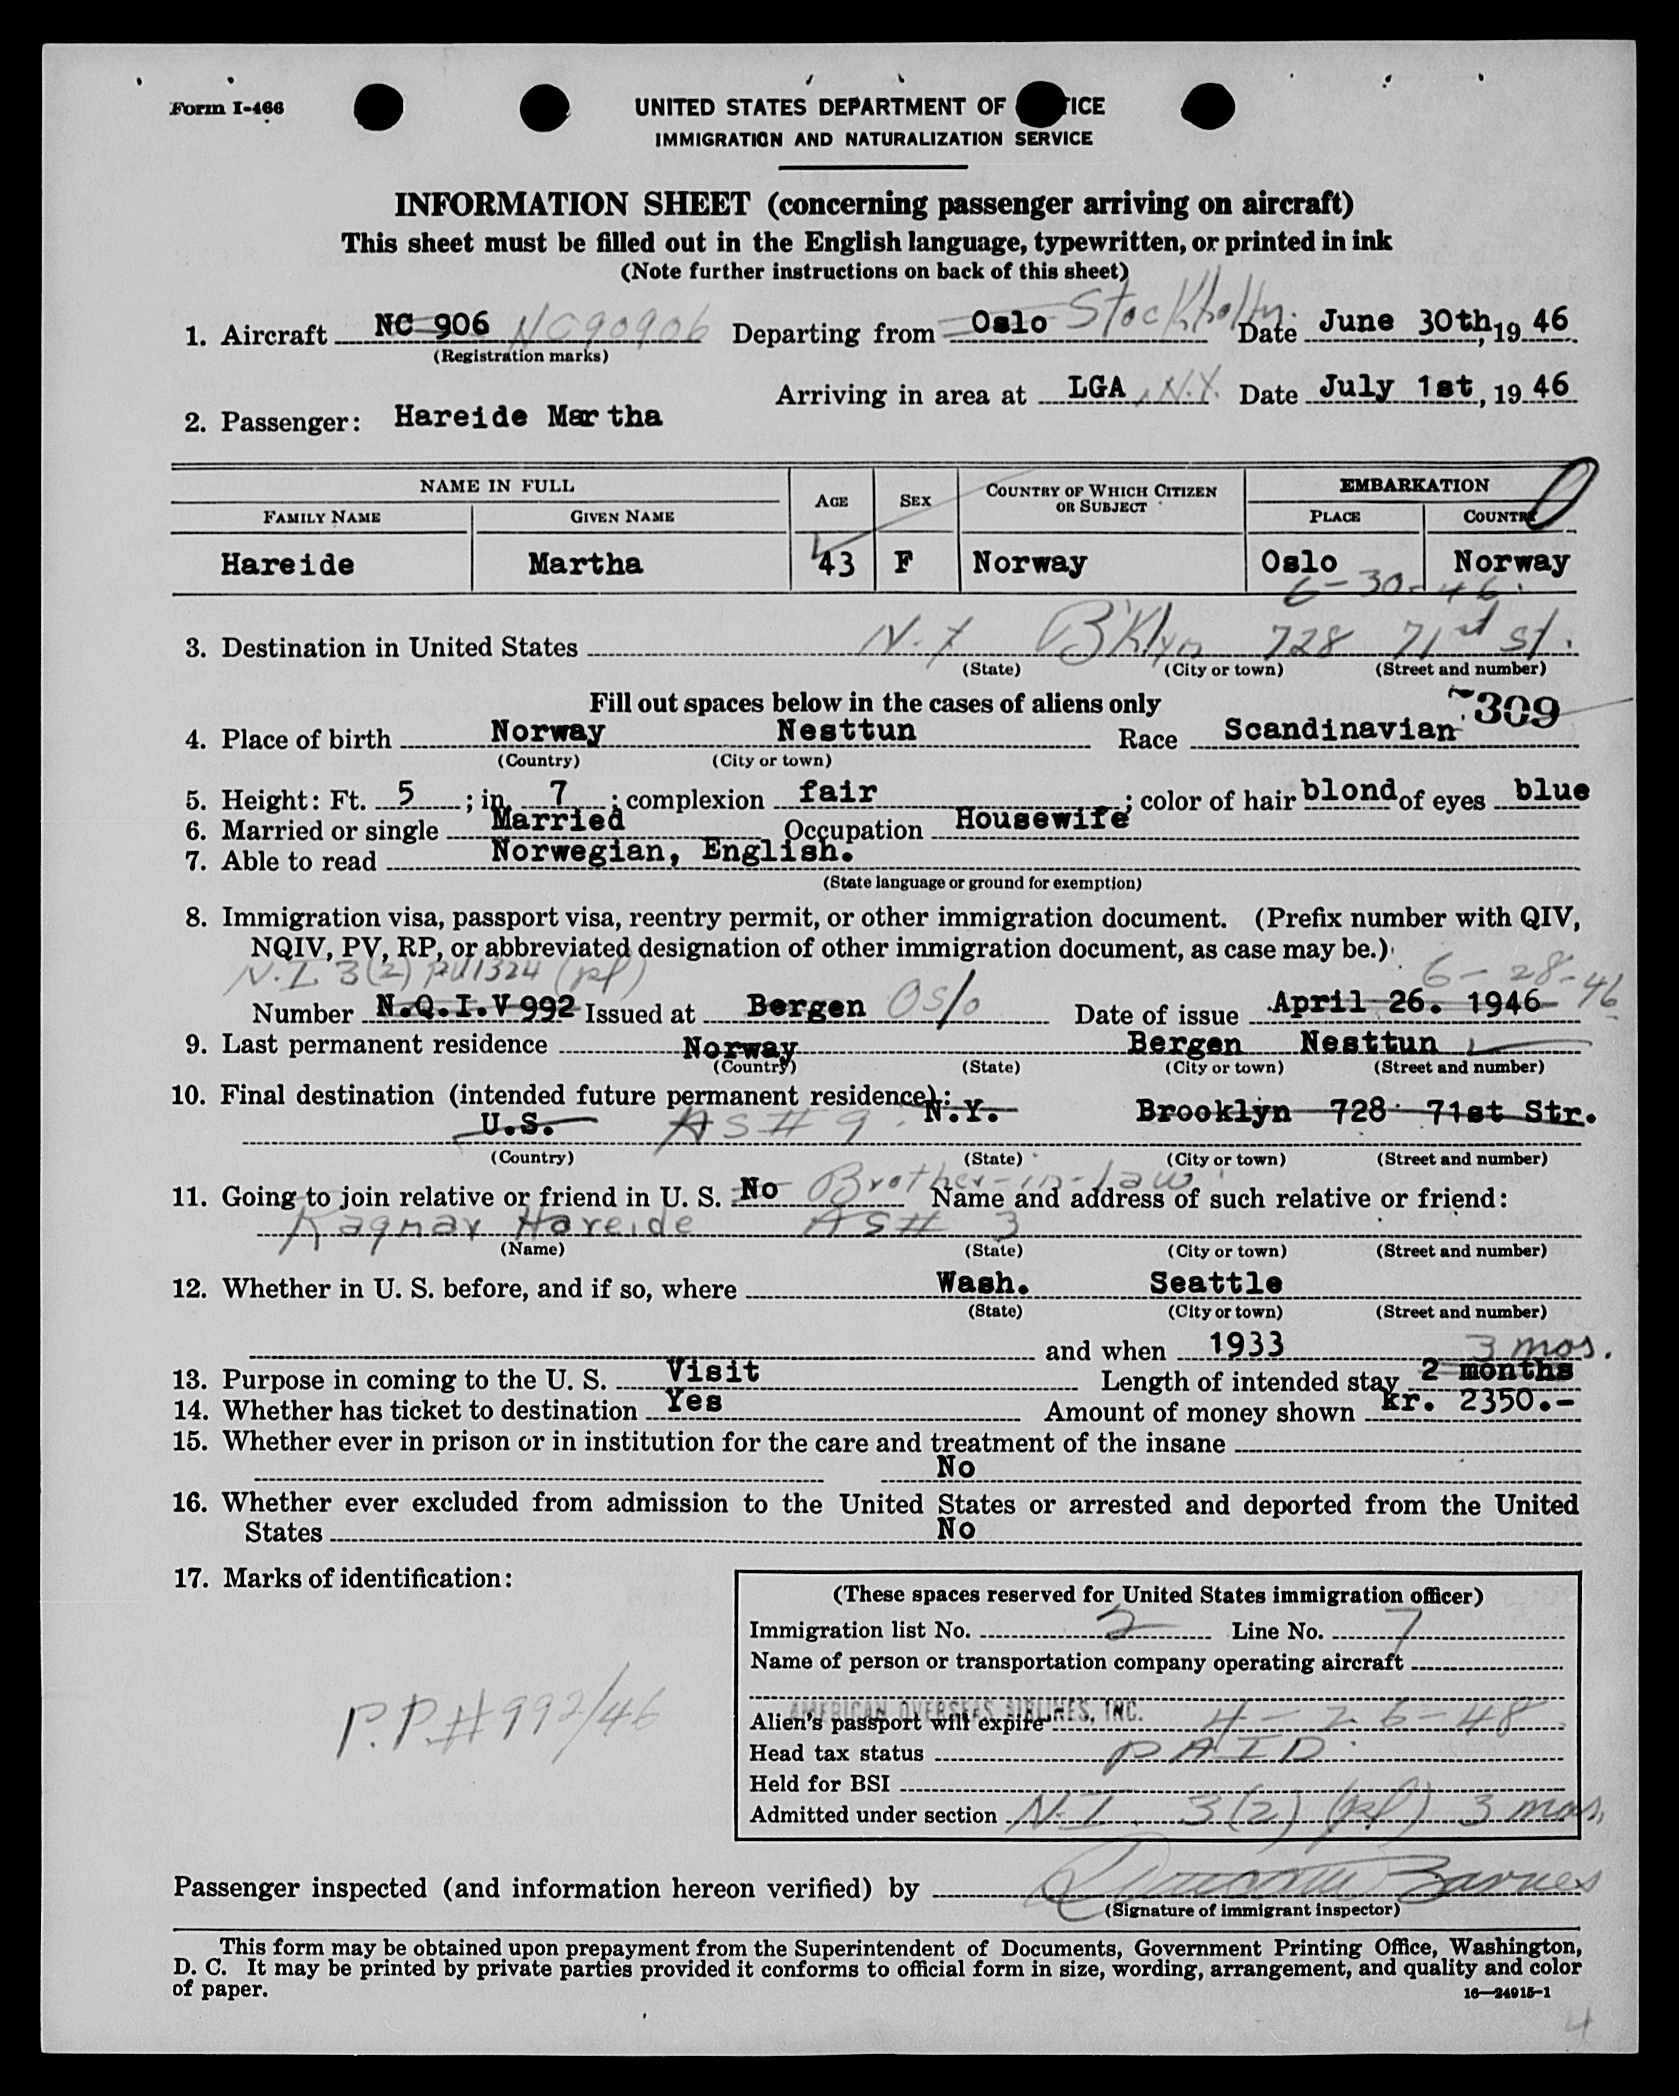 Form I-466
UNITED STATES DEPARTMENT OF TICE
IMMIGRATION AND NATURALIZATION SERVICE
INFORMATION SHEET (concerning passenger arriving on aircraft)
This sheet must be filled out in the English language, typewritten, or printed in ink
(Note further instructions on back of this sheet)
1. Aircraft NC 906 NC90906 Departing from Oslo Stockholm Date June 30th, 19 46
(Registration marks)
Arriving in area at LGA, N.Y. Date July 1st, 19 46
2. Passenger: Hareide Martha
NAME IN FULL AGE SEX COUNTRY OF WHICH CITIZEN OR SUBJECT EMBARKATION
FAMILY NAME GIVEN NAME PLACE COUNTRY
Hareide Martha 43 F Norway Oslo Norway
6-30-46.
3. Destination in United States N.Y B'Klyn 728 71st St.
(State) (City or town) (Street and number)
Fill out spaces below in the cases of aliens only
309
4. Place of birth Norway Nesttun Race Scandinavian
(Country) (City or town)
5. Height: Ft. 5; in. 7; complexion fair; color of hair blond of eyes blue
6. Married or single Married Occupation Housewife
7. Able to read Norwegian, English.
(State language or ground for exemption)
8. Immigration visa, passport visa, reentry permit, or other immigration document. (Prefix number with QIV,
NQIV, PV, RP, or abbreviated designation of other immigration document, as case may be.)
N.I. 3(2) PV1324 (pl) 6-28-46
Number N.Q.I.V 992 Issued at Bergen Oslo Date of issue April 26. 1946
9. Last permanent residence Norway Bergen Nesttun
(Country) (State) (City or town) (Street and number)
10. Final destination (intended future permanent residence):
U.S. AS # 9. N.Y. Brooklyn 728 71st Str.
(Country) (State) (City or town) (Street and number)
11. Going to join relative or friend in U. S. No Brother-in-law Name and address of such relative or friend:
Ragnar Hareide AS# 3
(Name) (State) (City or town) (Street and number)
12. Whether in U. S. before, and if so, where Wash. Seattle
(State) (City or town) (Street and number)
and when 1933
3 mos.
13. Purpose in coming to the U. S. Visit Length of intended stay 2 months
14. Whether has ticket to destination Yes Amount of money shown kr. 2350.-
15. Whether ever in prison or in institution for the care and treatment of the insane
No
16. Whether ever excluded from admission to the United States or arrested and deported from the United
States No
17. Marks of identification:
P.P.# 992/46
(These spaces reserved for United States immigration officer)
Immigration list No. 2 Line No. 7
Name of person or transportation company operating aircraft
AMERICAN OVERSEAS AIRLINES, INC.
Alien's passport will expire 4-26-48
Head tax status PAID.
Held for BSI
Admitted under section N.I. 3(2) (pl) 3 mos.
Passenger inspected (and information hereon verified) by Barnes
(Signature of immigrant inspector)
This form may be obtained upon prepayment from the Superintendent of Documents, Government Printing Office, Washington,
D. C. It may be printed by private parties provided it conforms to official form in size, wording, arrangement, and quality and color
of paper.
16—24915-1
4